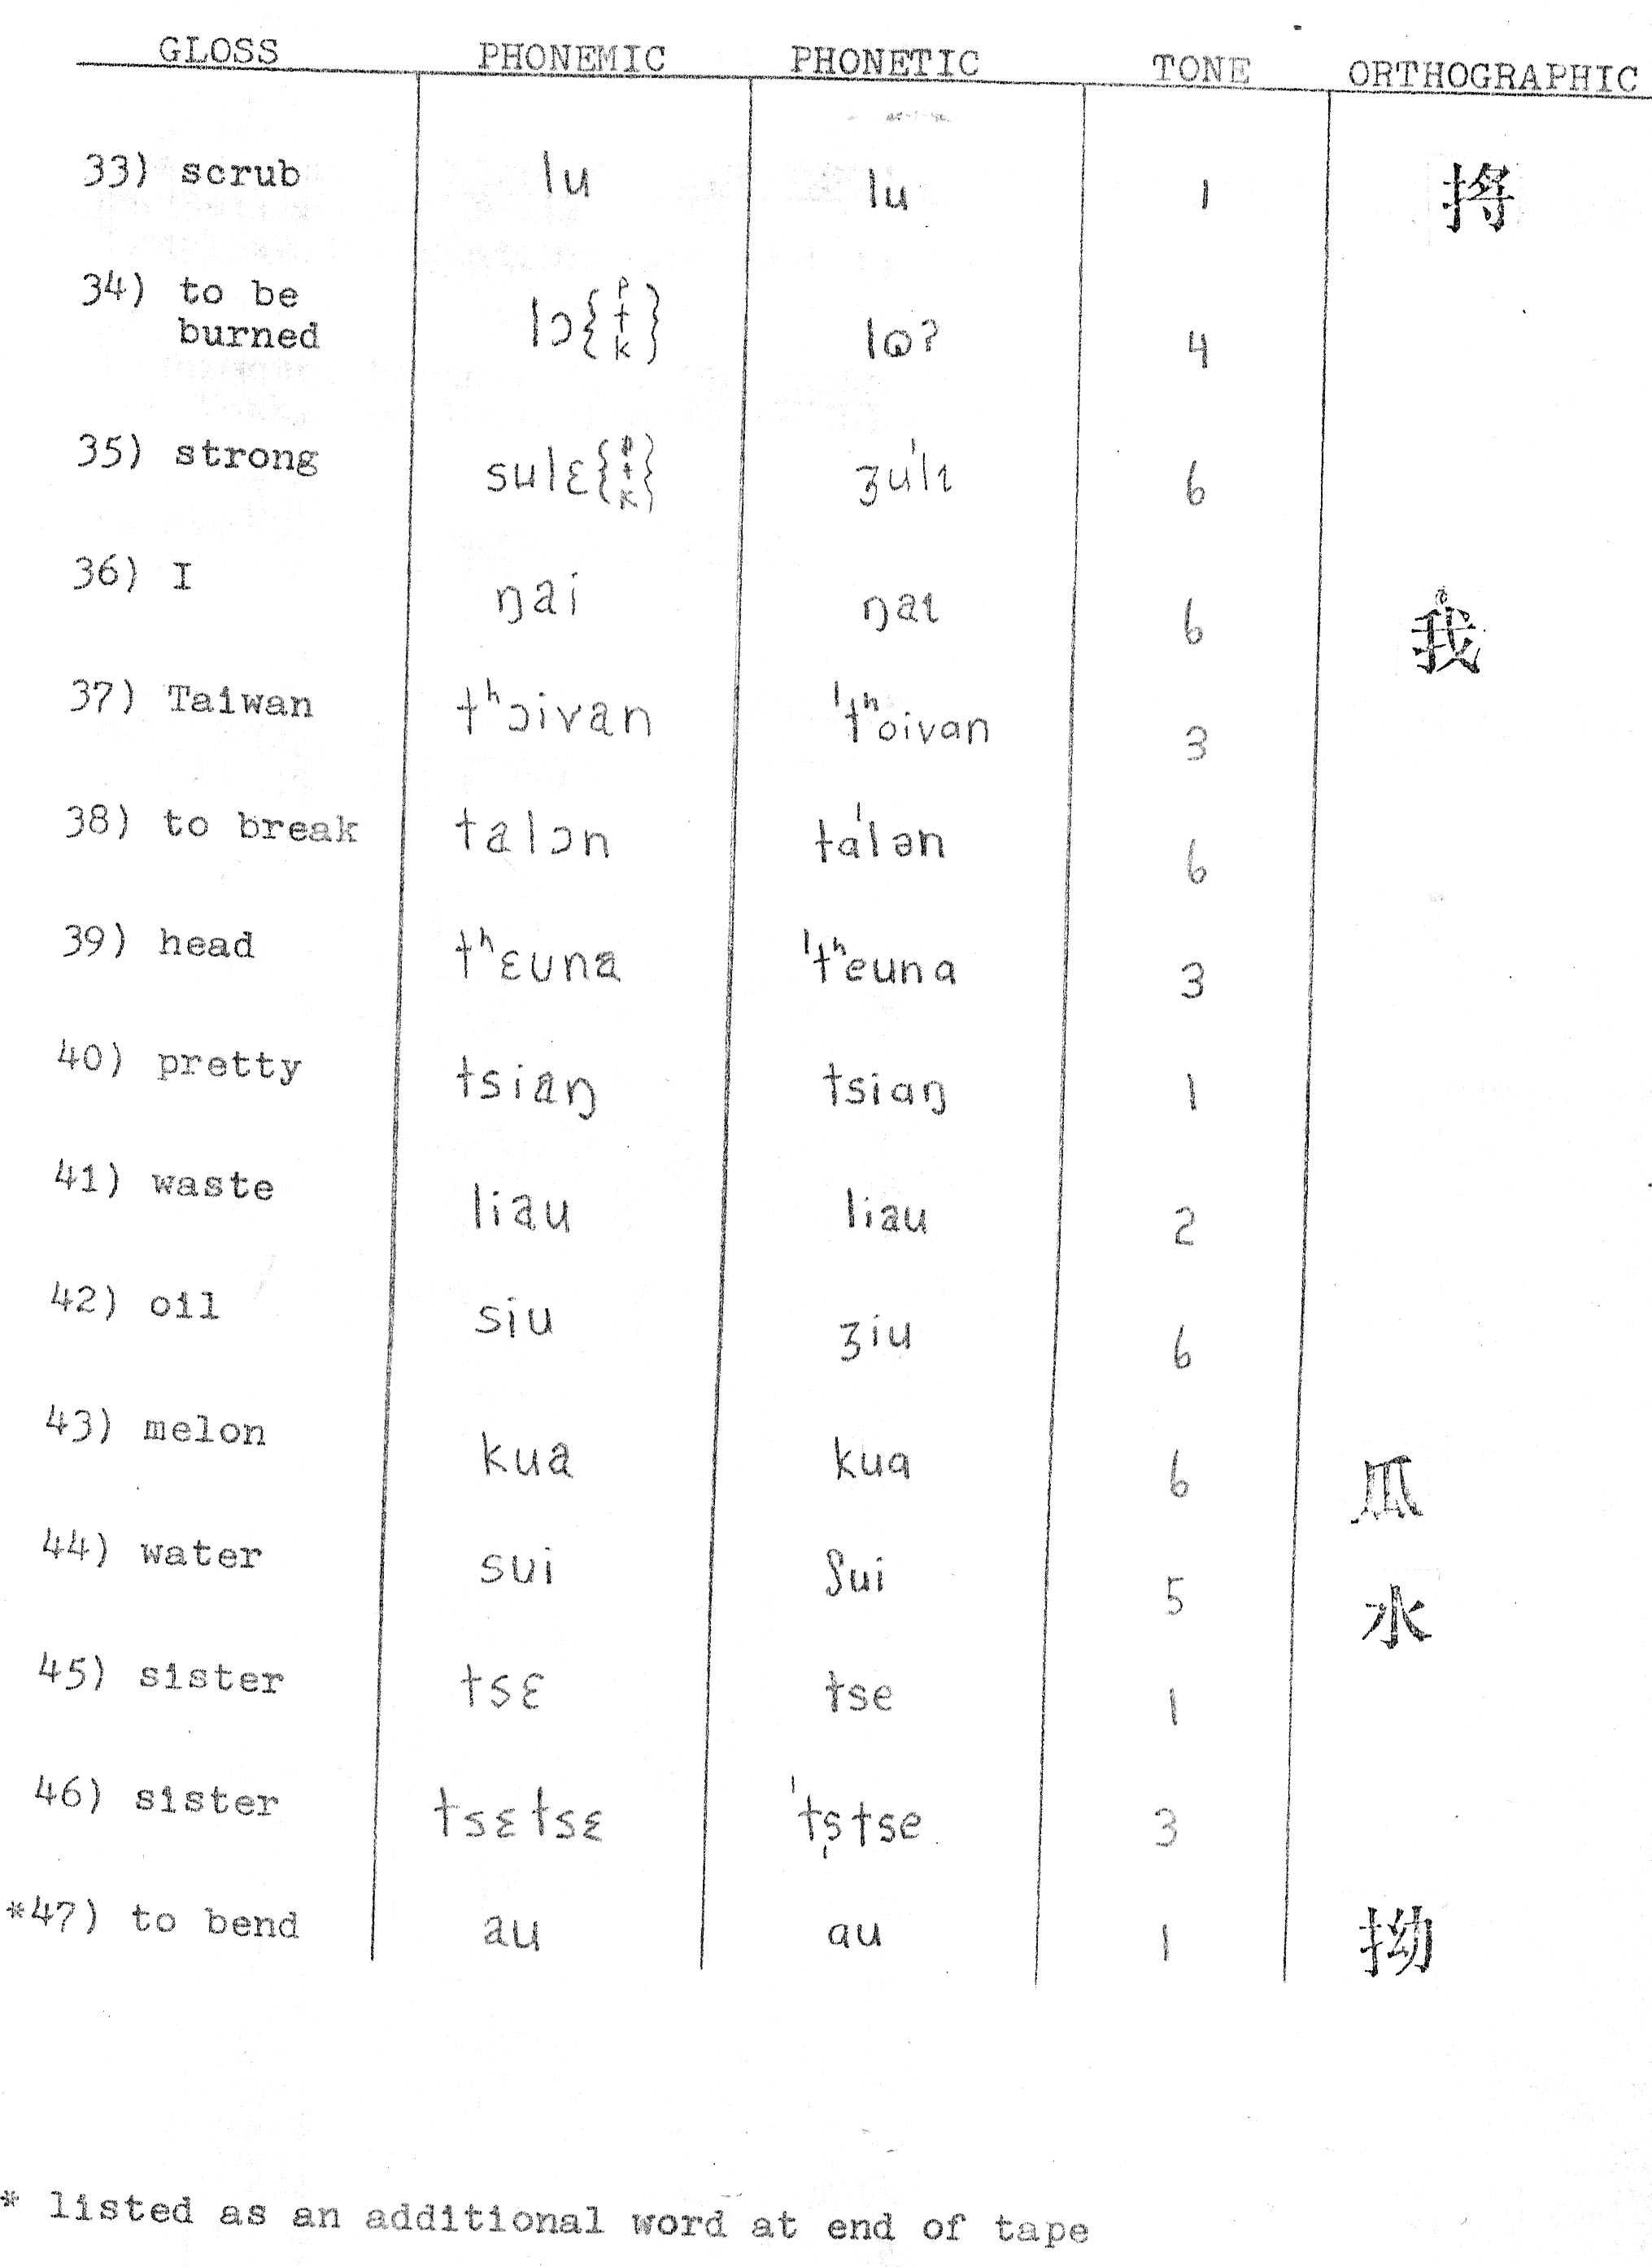 GLOSS PHONEMIC PHONETIC TONE ORTHOGRAPHIC
33) scrub lu lu 1 捋
34) to be burned lɔ{p t k} lɒʔ 4
35) strong sulɛ{p t k} ʒuˈlɪ 6
36) I ŋai ŋaɪ 6 我
37) Taiwan tʰɔivan ˈtʰoivɑn 3
38) to break talɔn tɑˈlən 6
39) head tʰɛuna ˈtʰeunɑ 3
40) pretty tsiaŋ tsiɑŋ 1
41) waste liau liau 2
42) oil siu ʒiu 6
43) melon kua kuɑ 6 瓜
44) water sui ʃui 5 水
45) sister tsɛ tse 1
46) sister tsɛtsɛ ˈts̩tse 3
*47) to bend au ɑu 1 拗
* listed as an additional word at end of tape